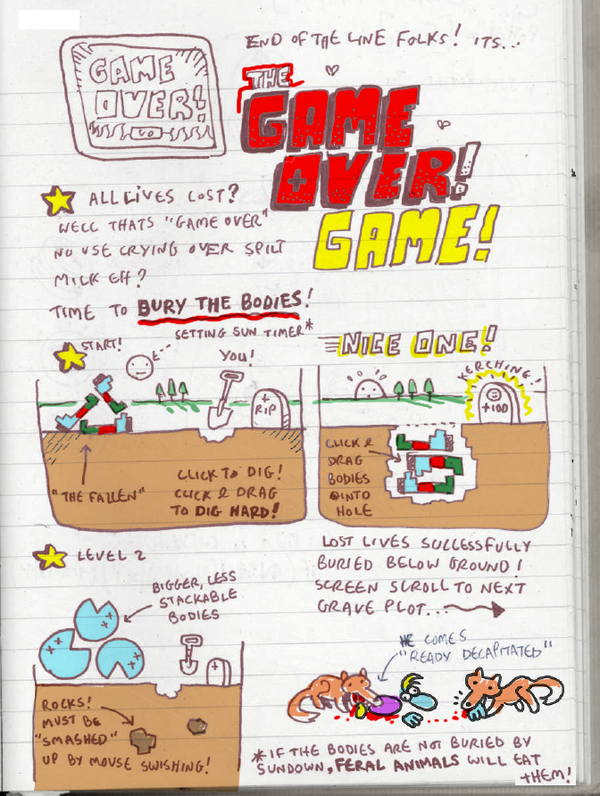 GAME
OVER!
END OF THE LINE FOLKS! ITS...
THE
GAME
OVER!
GAME!
ALL LIVES LOST?
WELL THATS "GAME OVER"
NO USE CRYING OVER SPILT
MILK EH?
TIME TO BURY THE BODIES!
SETTING SUN TIMER*
START!
YOU!
+
RIP
"THE FALLEN"
CLICK TO DIG!
CLICK & DRAG
TO DIG HARD!
NICE ONE!
KERCHING!
+100
CLICK &
DRAG
BODIES
INTO
HOLE
LOST LIVES SUCCESSFULLY
BURIED BELOW GROUND!
SCREEN SCROLL TO NEXT
GRAVE PLOT...
LEVEL 2
BIGGER, LESS
STACKABLE
BODIES
ROCKS!
MUST BE
"SMASHED"
UP BY MOUSE SWISHING!
HE COMES
"READY DECAPITATED"
*IF THE BODIES ARE NOT BURIED BY
SUNDOWN, FERAL ANIMALS WILL EAT
THEM!